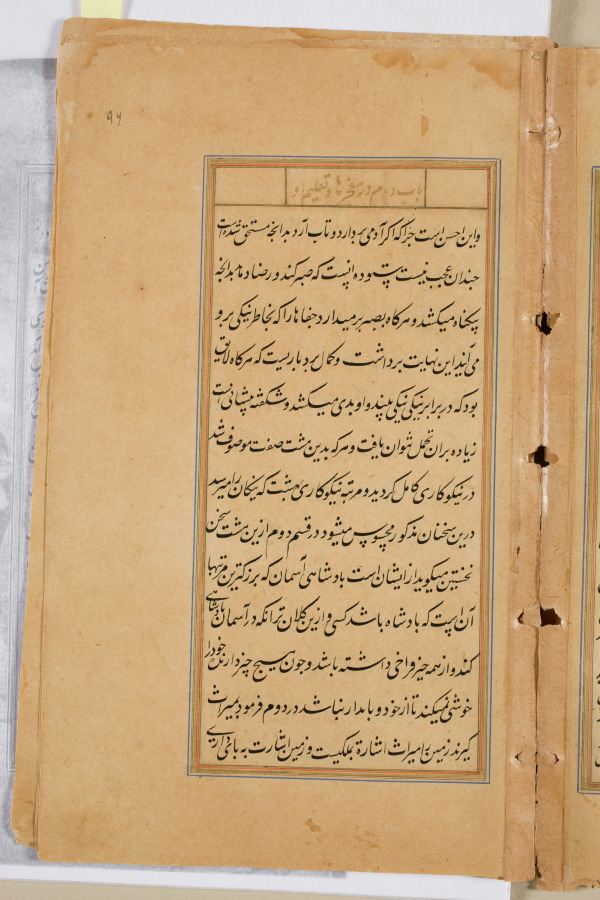 ۹۶
باب دوم در سخن ها و تعلیم او
و این احسن است چرا که اگر آدمی بردارد و تاب آرد بدانچه مستحق شده است
چندان عجب نیست ستوده آنست که صبر کند و رضا دهد بدانچه
بیگناه میکشد و هرگاه بصبر برمیدارد جفاها را که بخاطر نیکی برو
می آید این نهایت برداشت و کمال بردباریست که هرگاه لایق
بود که در برابر نیکی نیکی بیند و او بدی میکشد و شکفته پیشانی است
زیاده بران تحمل نتوان یافت و هر که بدین هشت صفت موصوف شد
در نیکوکاری کامل گردید و مرتبه نیکوکاری بهشت که نیکان را میرسد
درین سخنان مذکور محسوس میشود در قسم دوم ازین هشت سخن
نخستین میگوید از ایشان است بادشاهی آسمان که بزرگترین مرتبها
آن است که بادشاه باشد کسی و ازین کلان تر آنکه در آسمان بادشاهی
کند و از همه چیز فراخی داشته باشد و چون هیچ چیز دارنده خود را
خوشی نمیکند تا از خود و پایدار نباشد در دوم فرمود بمیراث
گیرند زمین را میراث اشارة بملکیت و زمین اشارت به باقی داری